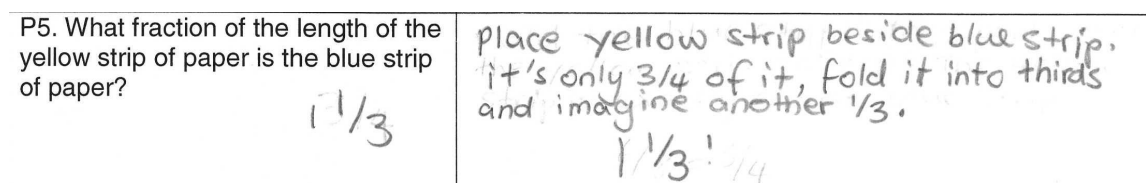 P5. What fraction of the length of the
yellow strip of paper is the blue strip
of paper?
1 1/3
place yellow strip beside blue strip.
it's only 3/4 of it, fold it into thirds
and imagine another 1/3.
1 1/3!